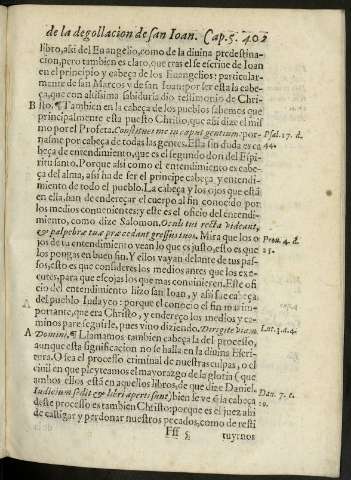 de la degollacion de san Ioan. Cap. 5. 402
libro, así del Euangelio, como de la diuina predestina-
cion, pero tambien es claro, que tras el se escriue de Ioan
en el principio y cabeça de los Euangelios: particular-
mente de san Marcos y de san Iuan: por ser esta la cabe-
ça, que con altissima sabiduria dio testimonio de Chri-
B sto. ¶ Tambien en la cabeça de los pueblos sabemos que
principalmente esta puesto Christo, que assi dize el mis
mo por el Profeta. Constitues me in caput gentium: por-
Psal. 17. d.
nasme por cabeça de todas las gentes. Esta sin duda es ca
44.
beça de entendimiento, que es el segundo don del Espi-
ritu santo. Porque assi como el entendimiento es cabe-
ça del alma, assi ha de ser el principe cabeça, y entendi-
miento de todo el pueblo. La cabeça y los ojos que està
en ella, han de endereçar el cuerpo al fin conocido por
los medios conuenientes: y este es el oficio del entendi-
miento, como dize Salomon. Oculi tui recta videant,
& palpebræ tuæ præcedant gressus tuos. Mira que los o
Prou. 4. d.
jos de tu entendimiento vean lo que es justo, esto es que
25.
los pongas en buen fin. Y ellos vayan delante de tus pas-
sos, esto es que consideres los medios antes que los exe-
cutes, para que escojas los que mas conuinieren. Este ofi
cio del entendimiento hizo san Ioan, y assi fue cabeça
A del pueblo Iudayco: porque el conocio el fin mas im-
portante, que era Christo, y endereço los medios y ca-
minos para seguirle, pues vino diziendo. Dirigite viam
Luc. 3. a. 4.
A Domini. ¶ Llamamos tambien cabeça la del processo,
aunque esta significacion no se halla en la diuina Escri-
tura. O sea el processo criminal de nuestras culpas, o el
ciuil en que pleyteamos el mayorazgo de la gloria (que
ambos ellos está en aquellos libros, de que dize Daniel.
Dan. 7. c.
Iudicium sedit & libri aperti sunt) bien se ve q̃ la cabeça
10.
deste processo es tambien Christo: porque es el juez assi
de castigar y perdonar nuestros pecados, como de resti
Fff 5 tuyrnos